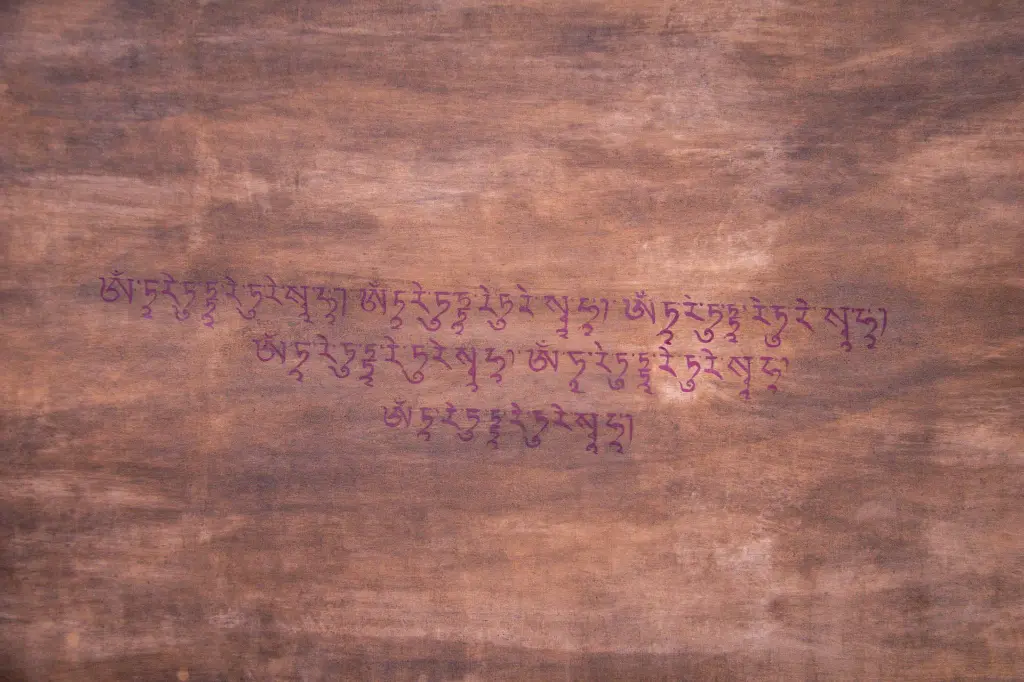 ༀ་ཏཱ་རེ་ཏུ་ཏྟཱ་རེ་ཏུ་རེ་སྭཱ་ཧཱ། ༀ་ཏཱ་རེ་ཏུ་ཏྟཱ་རེ་ཏུ་རེ་སྭཱ་ཧཱ། ༀ་ཏཱ་རེ་ཏུ་ཏྟཱ་རེ་ཏུ་རེ་སྭཱ་ཧཱ།
ༀ་ཏཱ་རེ་ཏུ་ཏྟཱ་རེ་ཏུ་རེ་སྭཱ་ཧཱ། ༀ་ཏཱ་རེ་ཏུ་ཏྟཱ་རེ་ཏུ་རེ་སྭཱ་ཧཱ།
ༀ་ཏཱ་རེ་ཏུ་ཏྟཱ་རེ་ཏུ་རེ་སྭཱ་ཧཱ།